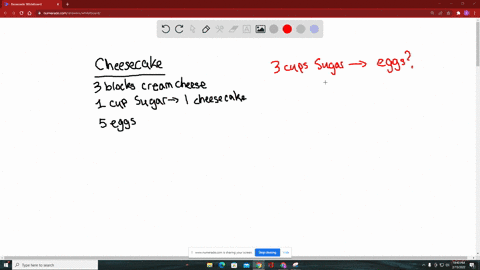 Cheesecake
3 blocks cream cheese
1 cup sugar → 1 cheesecake
5 eggs
3 cups sugar → eggs?
Stop sharing
Type here to search